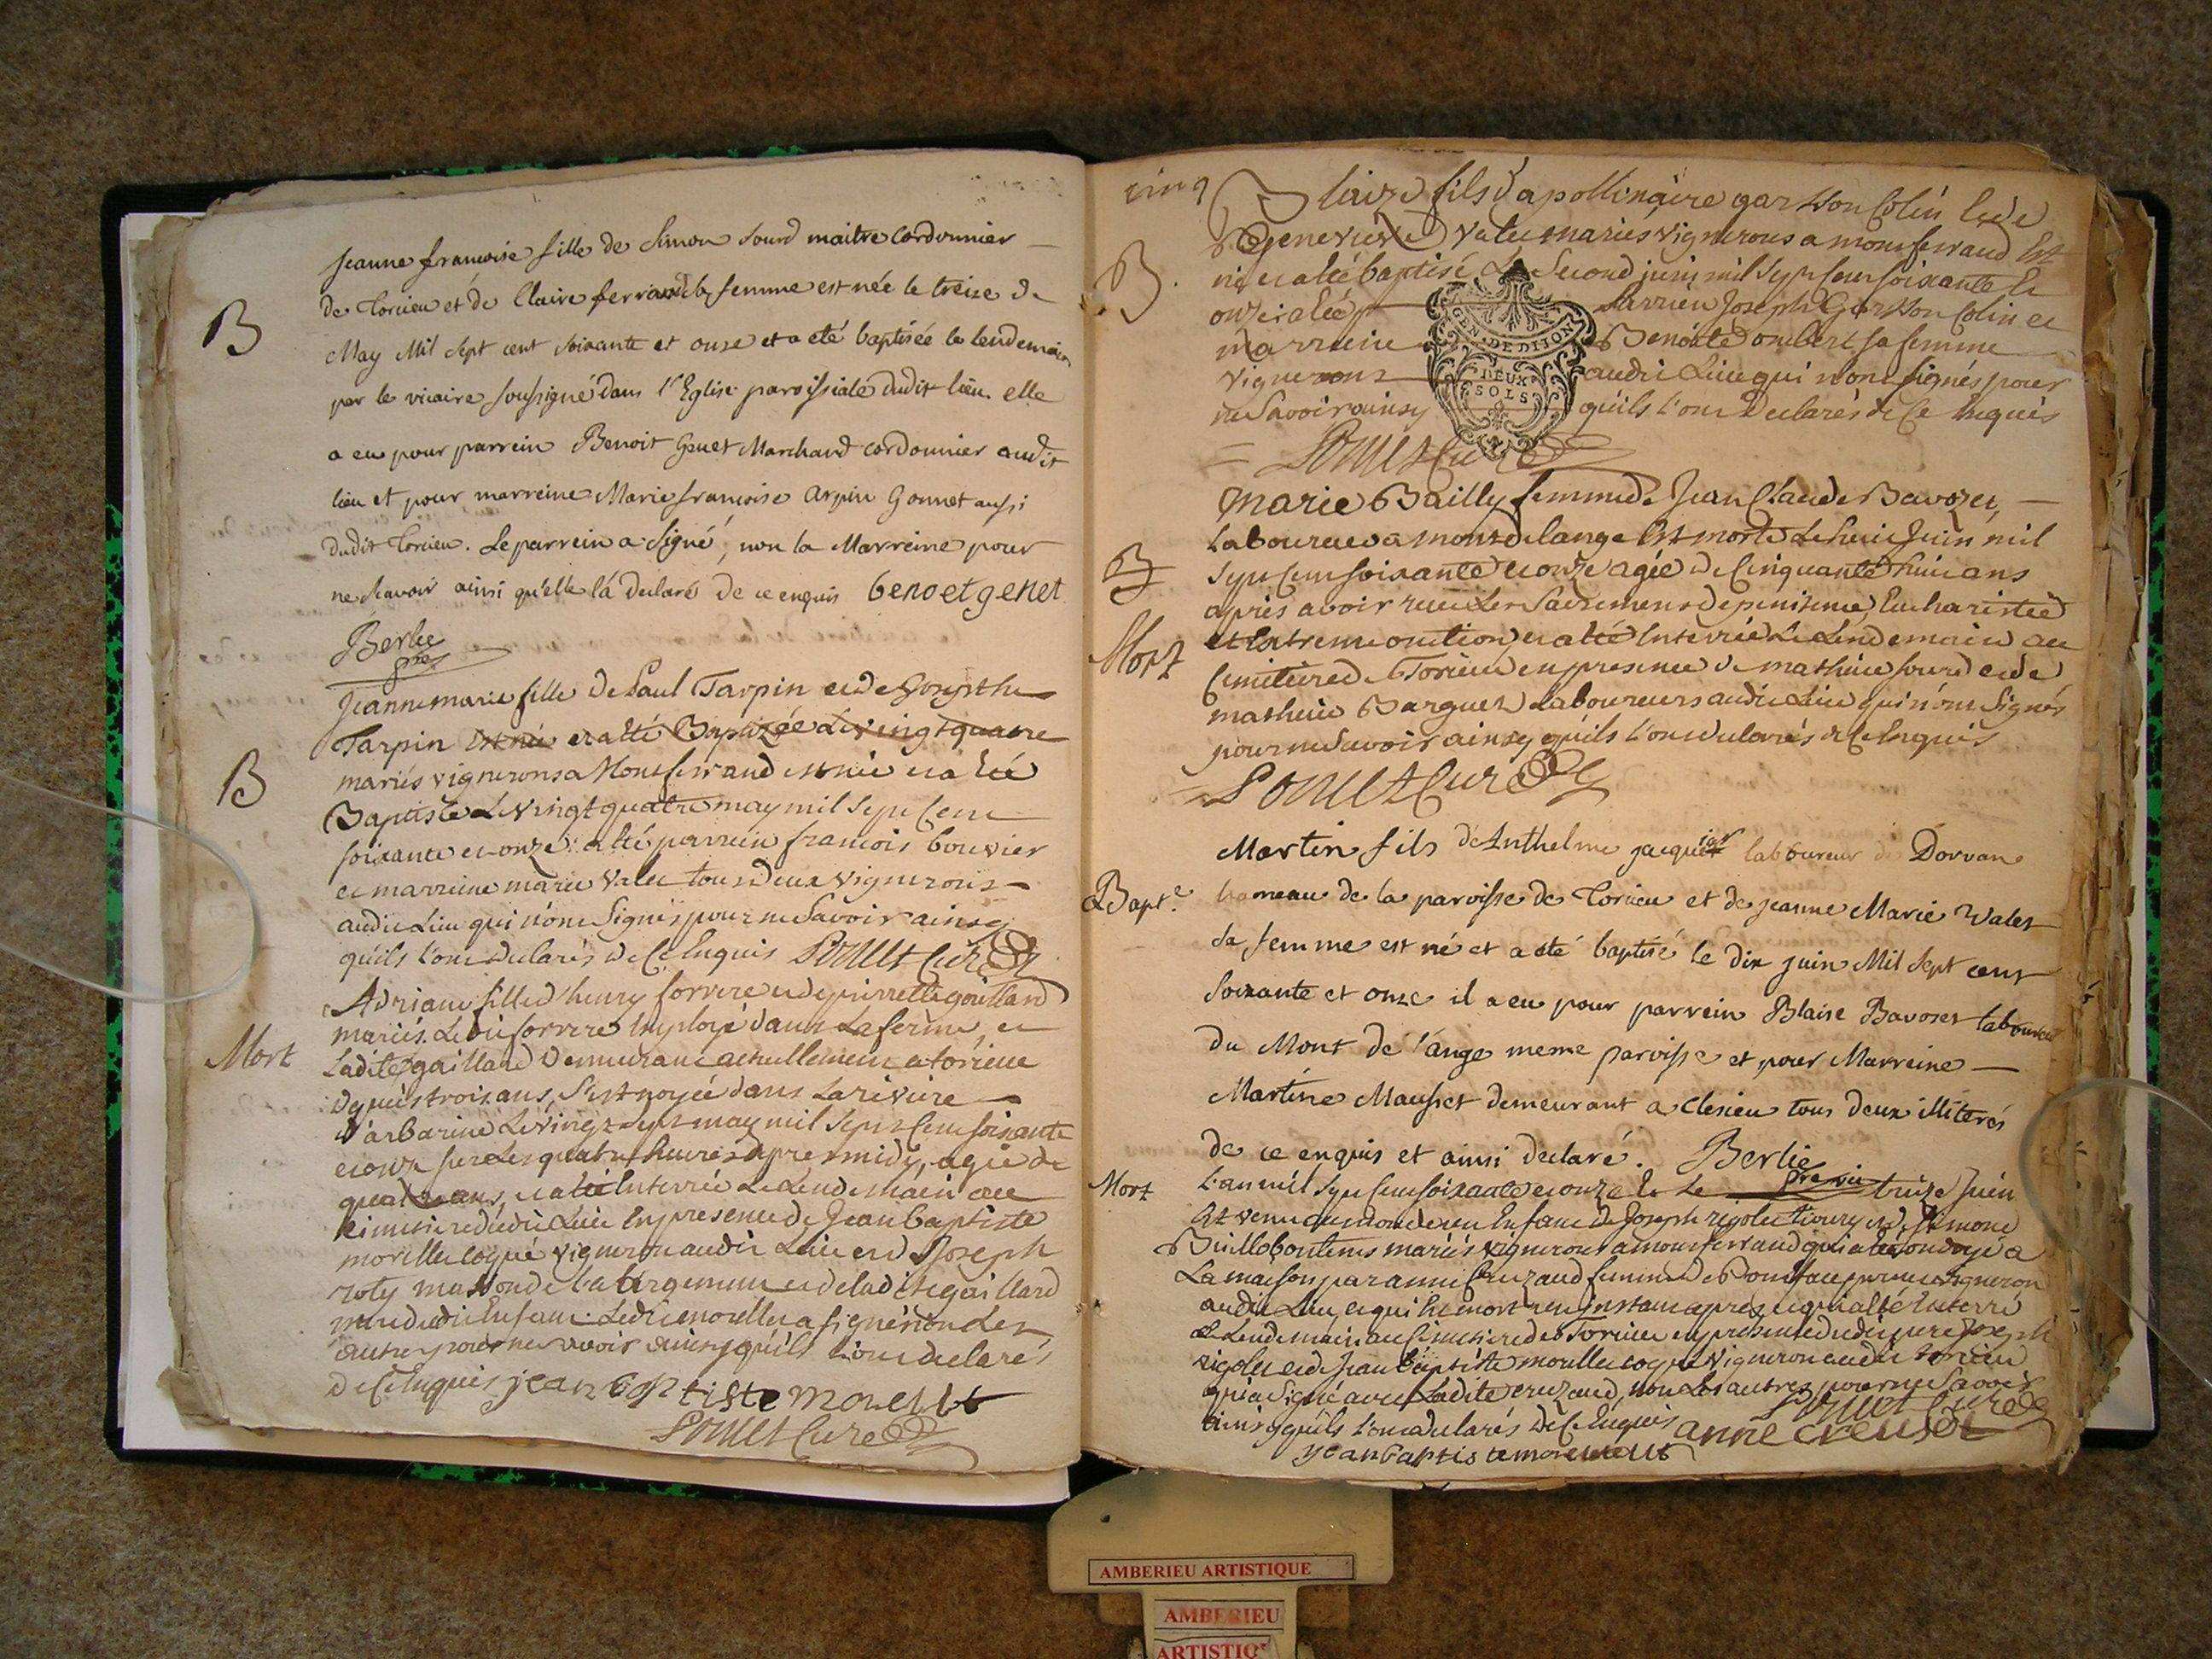 Jeanne francoise fille de Simon Sourd maitre Cordonnier
de Torcieu et de Claire ferrand sa femme est née le treize de
May Mil Sept cent Soixante et onze et a eté baptisée le lendemain
par le vicaire soussigné dans l'Eglise paroissiale dudit lieu. elle
a eu pour parrein Benoit Genet Marchand cordonnier audit
lieu et pour marreine Marie francoise Arpin Gonnet aussi
dudit Torcieu. Le parrein a Signé, non la Marreine pour
ne Scavoir ainsi qu'elle l'a declaré de ce enquis benoet genet
Berlie
pre
B
Jeanne marie fille de Paul Tarpin et de
Tarpin est née et a Eté Baptizée Le vingt quatre
mariés vignerons a Montferrand est née et a Eté
Baptisée Le vingt quatre may mil Sept Cent
soixante et onze: a Eté parrein francois bouvier
et marreine marie Valet tous deux vignerons
audit Lieu qui n'ont Signés pour ne Savoir ainsy
qu'ils l'ont declarés de Ce Enquis Curé
B
Adriane fille d'henry forrere et de pierrette gaillard
mariés. Le dit forrere Employé dans La ferme, et
Ladite gaillard demeurant actuellement a torcieu
depuis trois ans, S'est noyée dans La riviere
d'arbarine Le vingt Sept may mil Sept Cent soixante
et onze sur Les quatre heures apres midy, agée de
quatre ans, et a Eté Enterrée Le Lendemain au
cimetiere dudit Lieu En presence de Jean baptiste
morellet coque vigneron audit Lieu et de Joseph
roty masson de et de Ladite gaillard
mere dudit Enfant. Ledit morellet a signé non Les
autres pour ne Savoir ainsy qu'ils l'ont declarés
de Ce Enquis jean baptiste morellet
Curé
Mort
cinq
Blaize fils d'apollinaire garsson Colin et de
Genevieve Valet mariés vignerons a montferrand Est
né et a eté baptisé Le Second juin mil Sept Cent soixante et
onze a Eté parrein Joseph Garsson Colin et
marreine Benoite ombert sa femme
vignerons audit Lieu qui n'ont signés pour
ne Savoir ainsy qu'ils l'ont Declarés de Ce Enquis
Curé
B.
GEN. DE DIJON
DEUX
SOLS
Marie Bailly femme de Jean Claude Bavozet
Laboureur a mont de lange Est morte Le huit Juin mil
Sept Cent soixante et onze agée de Cinquante huit ans
après avoir reçu Les Sacremens de penitence, Eucharistie
et Extreme onction, et a Eté Enterrée Le Lendemain au
Cimitiere de Torcieu en presence de mathieu sourd et de
mathieu Barguet Laboureurs audit Lieu qui n'ont Signés
pour ne Savoir ainsy qu'ils l'ont declarés de Ce Enquis
Curé
B
Mort
Martin fils d'Anthelme jacquier laboureur de Dorvan
hameau de la paroisse de Torcieu et de jeanne Marie Valet
sa femme est né et a eté baptisé le dix juin Mil Sept cent
Soixante et onze il a eu pour parrein Blaise Bavozet laboureur
du Mont de l'ange meme paroisse et pour Marreine
Martine Mausset demeurant a Clesieu tous deux illiterés
de ce enquis et ainsi declaré. Berlie
pre vic
Bapt.e
L'an mil Sept Cent soixante et onze Le treize Juin
Est venu au monde un Enfant de Joseph rigolet et de Simone
mariés vignerons a montferrand qui a Eté ondoyé a
La maison par anne Creuzaud femme de vigneron
audit Lieu et qui Est mort un instant après et qui a Eté Enterré
Le Lendemain au Cimitiere de Torcieu en presence dudit pere Joseph
rigolet et de Jean baptiste morellet coque vigneron audit torcieu
qui a Signé avec Ladite creuzaud, non Les autres pour ne Savoir
ainsy qu'ils l'ont declarés de Ce Enquis Curé
anne creuzot
jean baptiste morellet
Mort
AMBERIEU ARTISTIQUE
AMBERIEU
ARTISTIQ